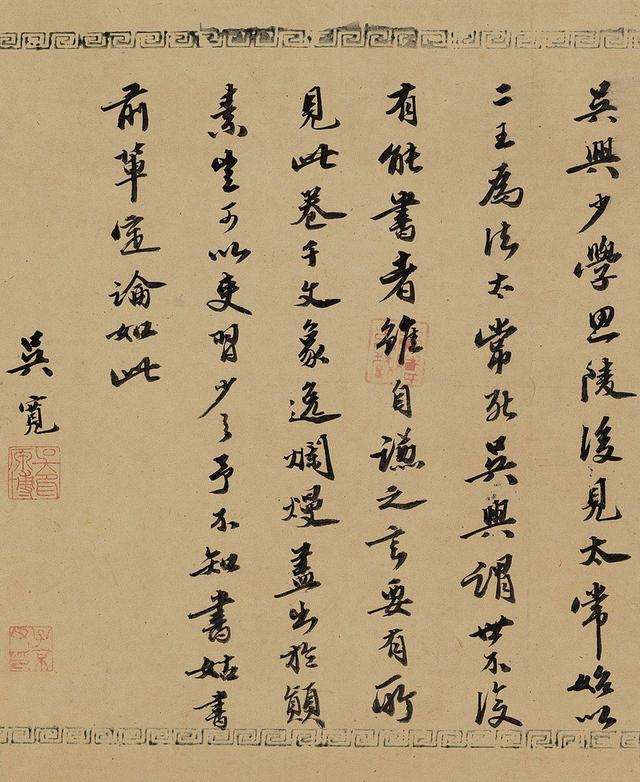 吳興少學思陵後見太常始以
二王為法太常死吳興謂世不復
有能書者雖自謙之言要有所
見此卷千文豪逸爛熳蓋出於顛
素豈可以吏習少之予不知書姑書
前輩定論如此
吳寬